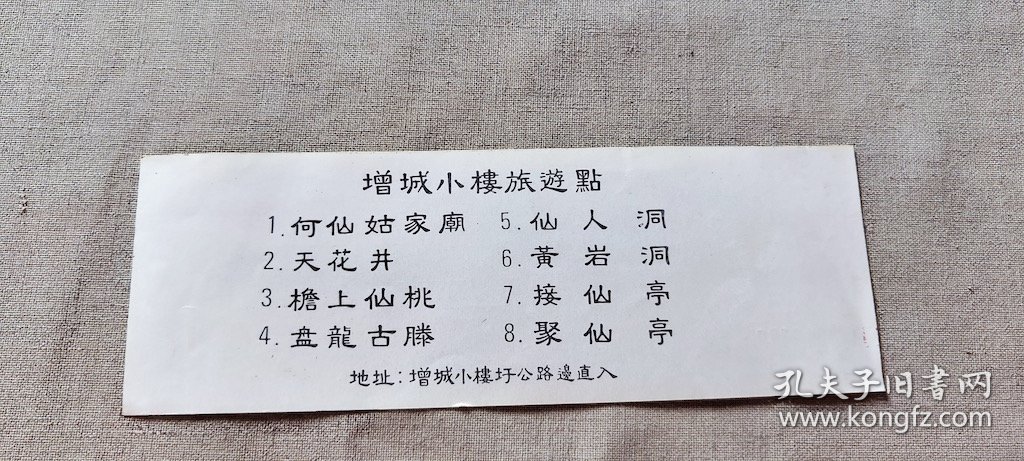 增城小樓旅遊點
1.何仙姑家廟 5.仙人洞
2.天花井 6.黃岩洞
3.檐上仙桃 7.接仙亭
4.盘龍古滕 8.聚仙亭
地址:增城小樓圩公路邊直入
孔夫子旧書网
www.kongfz.com